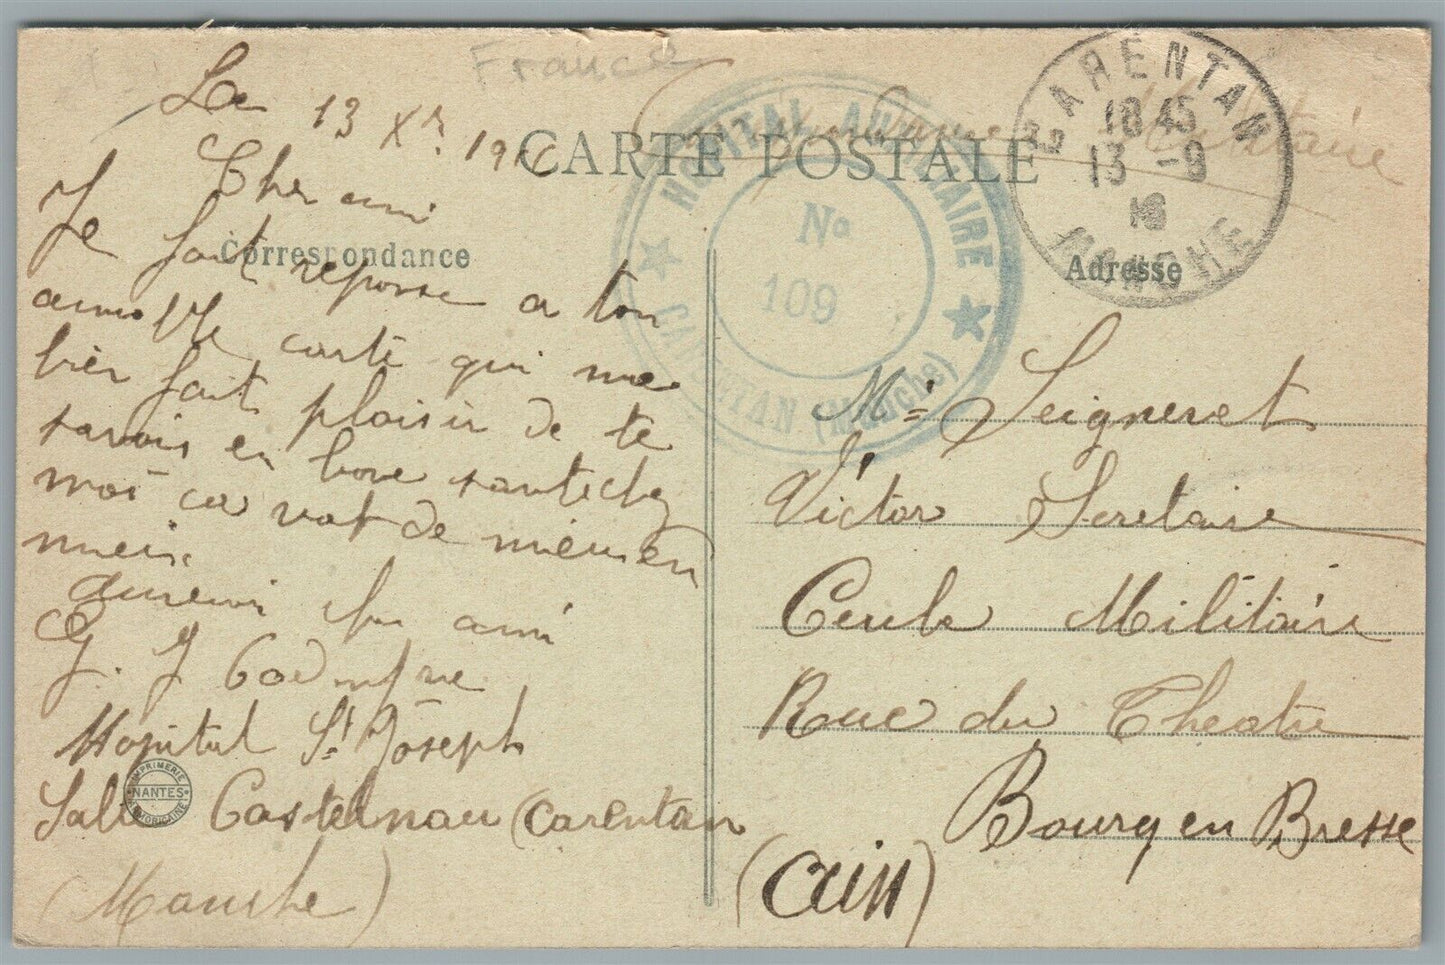 France
Correspondance Militaire
CARTE POSTALE
Correspondance
Adresse
HOPITAL AUXILIAIRE
No
109
CARENTAN (Manche)
CARENTAN
18 45
13 - 9
16
MANCHE
Le 13 Xr 1916
Cher ami
Je fait reponse a ton
aimable carte qui me
bien fait plaisir de te
savois en bone sante chez
moi ca vat de mieu en
mieix
ami
G. J
Hopital St Joseph
Salle Castelnau (Carentan
(Manche)
IMPRIMERIE
NANTES
ARMORICAINE
Mr Seigneret
Victor Secretaire
Cercle Militaire
Rue du Theatre
Bourg en Bresse
(Ain)